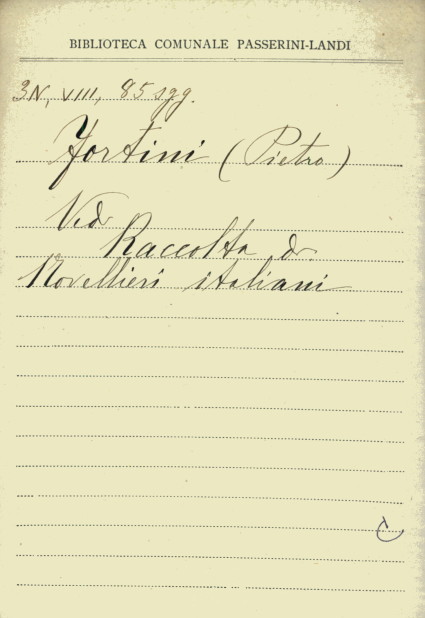 BIBLIOTECA COMUNALE PASSERINI-LANDI
3N, VIII, 85 sgg.
Fortini (Pietro)
Vedi
Raccolta di
Novellieri italiani